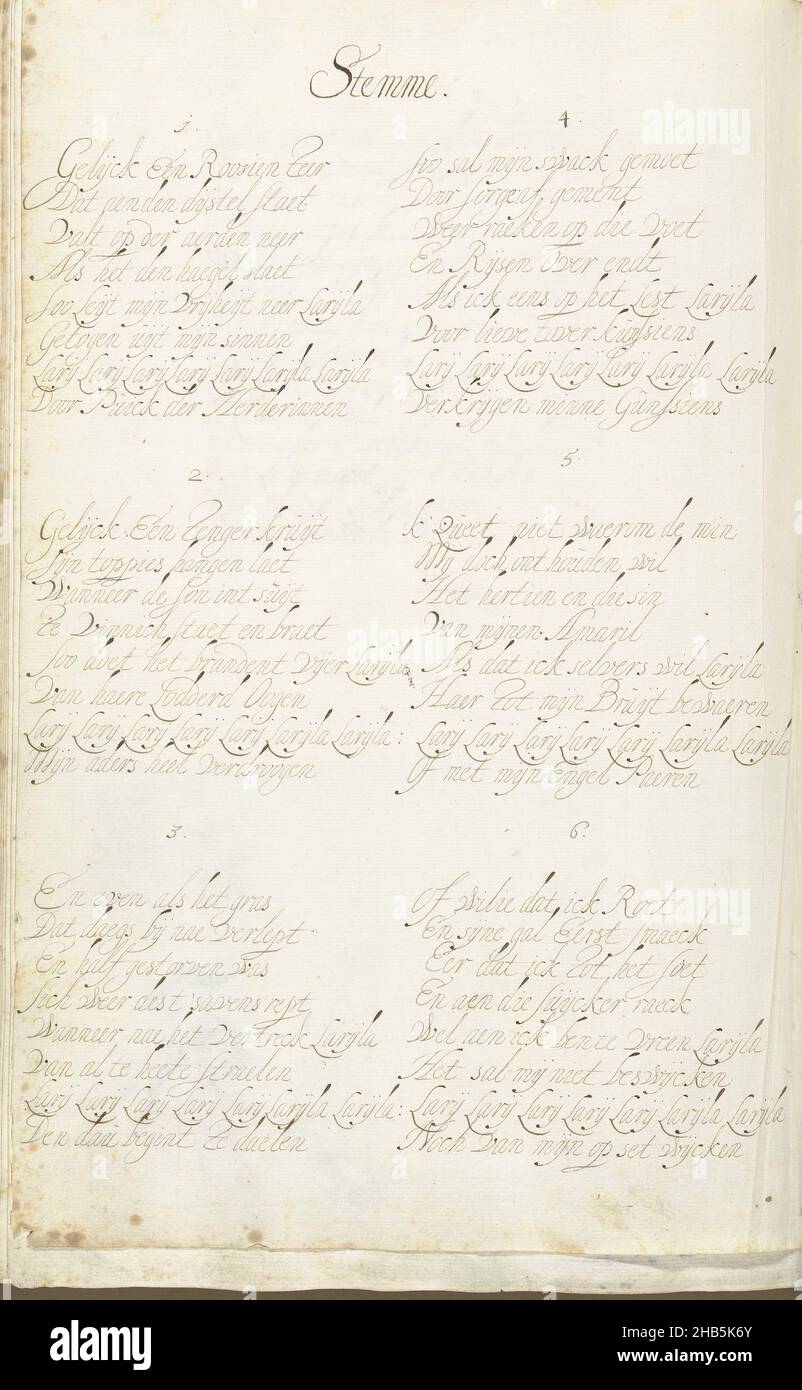 Stemme.
1.
Gelijck Een Roosien Teer
Dat aen den dijstel staet
Valt op der aerden neer
Als het den haegel slaet
Soo leijt mijn Vrijheijt neer Larijla
Getogen uijt mijn sinnen
Larij Larij Larij Larij Larij Larijla Larijla
Door Puick der Herderinnen
2.
Gelijck Een Tenger kruijt
Sijn toppies hangen laet
Wanneer de Son int suijt
Te Vinnich staet en braet
Soo doet het brandent Vijer Larijla
Van haere Lodderd Oogen
Larij Larij Larij Larij Larij Larijla Larijla:
Mijn aders heel Verdroogen
3.
En even als het gras
Dat daegs bij nae Verlept
En half gestorven was
Sich weer dest savens rept
Wanneer nae het Vertreck Larijla
Van al te heete Straelen
Larij Larij Larij Larij Larij Larijla Larijla:
Den dau begint Te daelen
4.
Soo sal mijn swack gemoet
Door Sorgen gement
Weer raeken op die Voet
En Rijsen Over endt
Als ick eens op het Lest Larijla
Voor lieve tover kunsiens
Larij Larij Larij Larij Larij Larijla Larijla
Verkrijgen minne Gunssiens
5.
k' Queet niet waerom de min
Mij doch ont houden wil
Het hertien en die sin
Van mijnen Amaril
Als dat ick selvers wil Larijla
Haer Tot mijn Bruijt bewaeren
Larij Larij Larij Larij Larij Larijla Larijla
Of met mijn Engel Paeren
6.
Of wilie dat ick Roet
En sijne gal Eerst smaeck
Eer dat ick Tot het soet
En aen die suijcker raeck
Wel aen ick ben te Vreen Larijla
Het sal mij niet beswijcken
Larij Larij Larij Larij Larij Larijla Larijla
Noch Van mijn op set Wijcken
alamy
alamy
alamy
alamy
Image ID: 2HB5K6Y
www.alamy.com